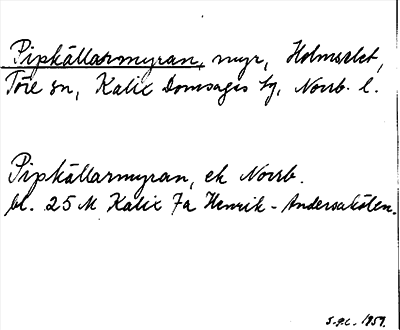 Pipkällarmyran, myr, Holmselet,
Töre sn, Kalix Domsagas tg, Norrb. l.
Pipkällarmyran, ek Norrb.
bl. 25 M Kalix 7a Henrik-Andersaksten.
S.g.l. 1959.